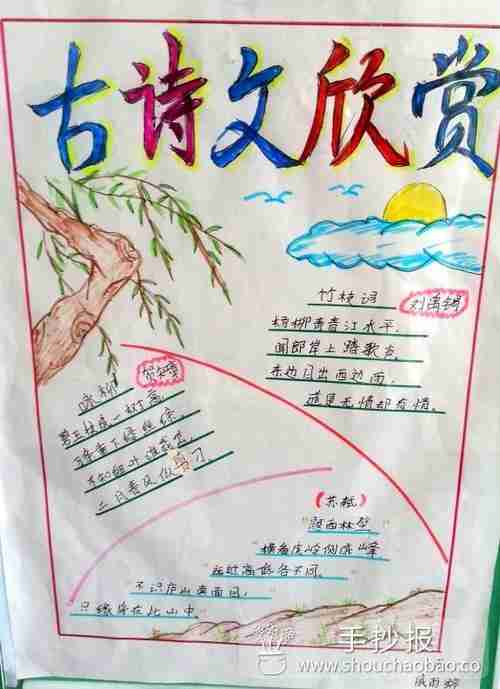 古诗文欣赏
竹枝词 刘禹锡
杨柳青青江水平,
闻郎岸上踏歌声,
东边日出西边雨,
道是无情却有情。
咏柳 贺知章
碧玉妆成一树高
万条垂下绿丝绦
不知细叶谁裁出
二月春风似剪刀
(苏轼)
"题西林壁"
"横看成岭侧成峰
远近高低各不同,
不识庐山真面目,
只缘身在此山中"
手抄报
www.shouchaobao.cn